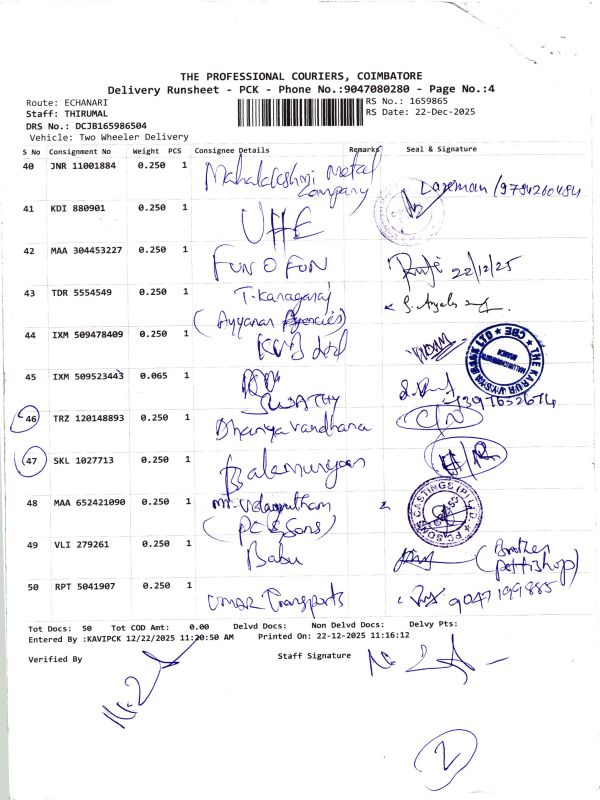 THE PROFESSIONAL COURIERS, COIMBATORE
Delivery Runsheet - PCK - Phone No.:9047080280 - Page No.:4
Route: ECHANARI
RS No.: 1659865
Staff: THIRUMAL
RS Date: 22-Dec-2025
DRS No.: DCJB165986504
Vehicle: Two Wheeler Delivery
S No Consignment No Weight PCS Consignee Details Remarks Seal & Signature
40 JNR 11001884 0.250 1 Mahalakshmi Metal Company
41 KDI 880901 0.250 1 UHE
42 MAA 304453227 0.250 1 FUN O FUN 22/12/25
43 TDR 5554549 0.250 1 T. Kanagaraj
(Ayyanar Agencies)
44 IXM 509478409 0.250 1 KVB Ltd
THE KARUR VYSYA BANK LTD CBE
45 IXM 509523443 0.065 1 SWATHY
46 TRZ 120148893 0.250 1 Dhanya Vandhana C/N
47 SKL 1027713 0.250 1 Balamurugan
48 MAA 652421090 0.250 1 mr. Velayutham
(PC & Sons)
PC SONS CASTINGS (P) LTD
49 VLI 279261 0.250 1 Babu (Brother pettishop)
50 RPT 5041907 0.250 1 UMAR Transports 9047199885
Tot Docs: 50 Tot COD Amt: 0.00 Delvd Docs: Non Delvd Docs: Delvy Pts:
Entered By :KAVIPCK 12/22/2025 11:20:50 AM Printed On: 22-12-2025 11:16:12
Verified By Staff Signature
2